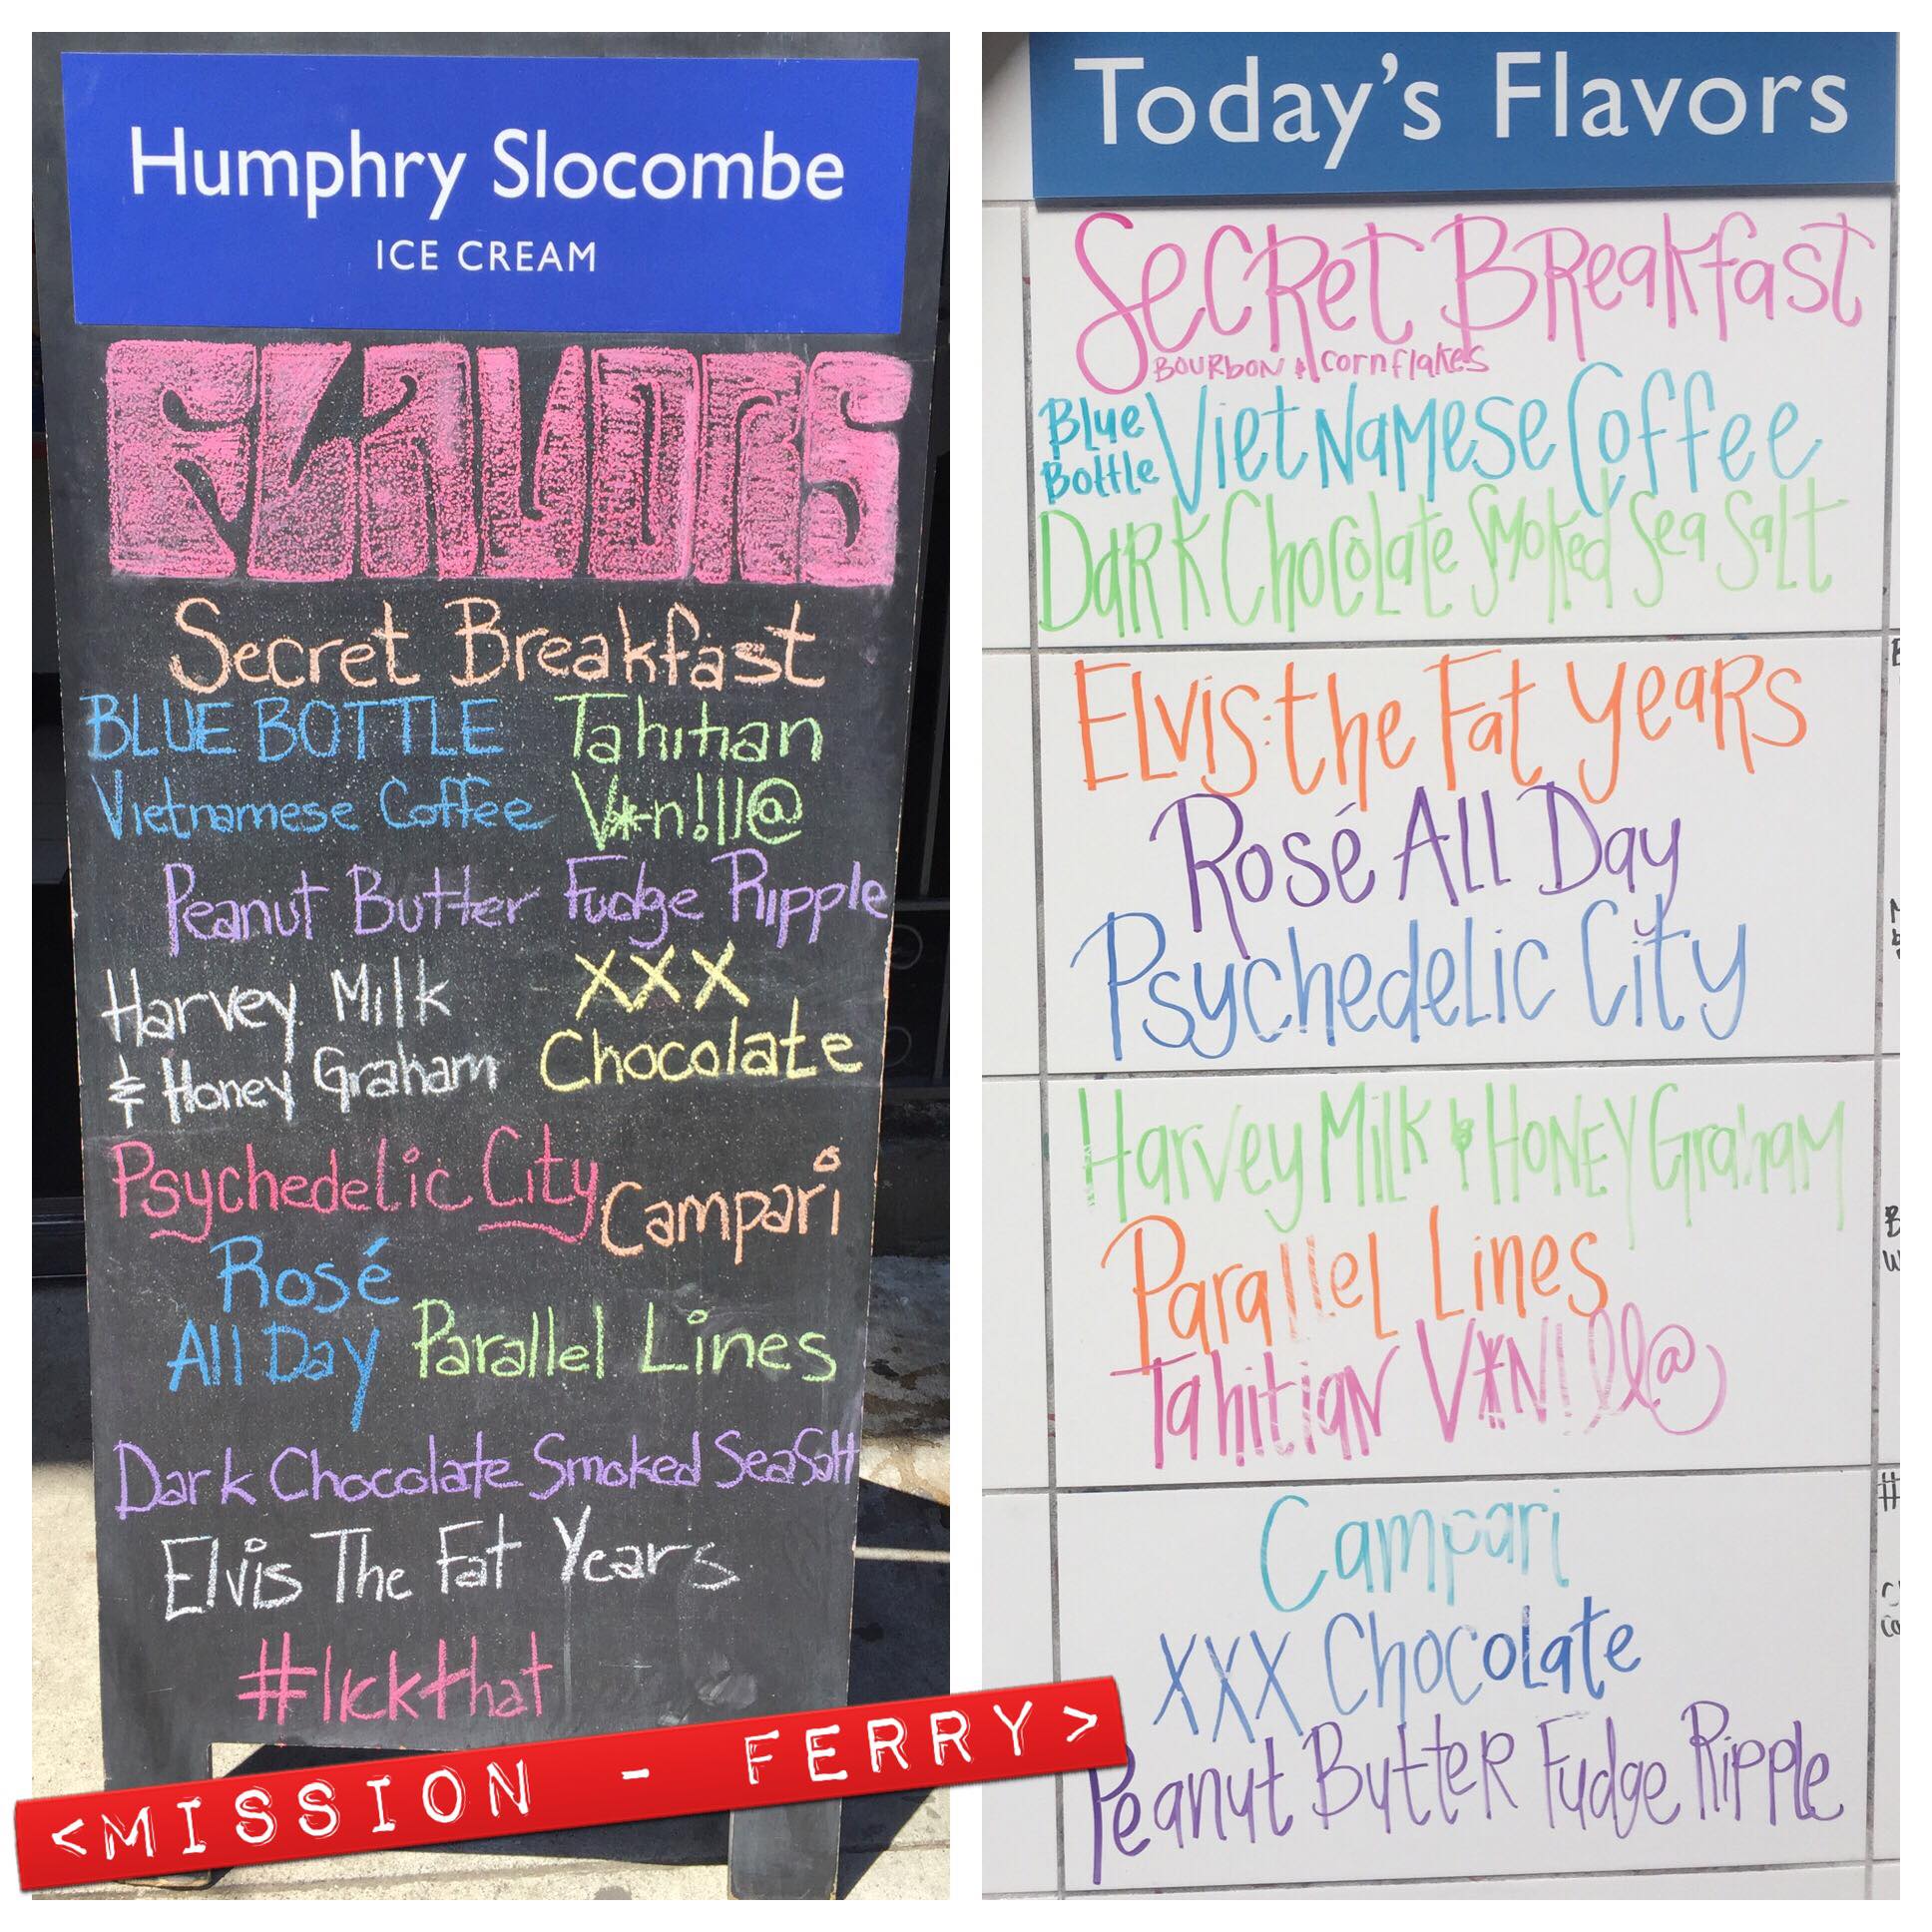 Humphry Slocombe
ICE CREAM
FLAVORS
Secret Breakfast
BLUE BOTTLE
Vietnamese Coffee
Tahitian
V*n!ll@
Peanut Butter Fudge Ripple
Harvey Milk
& Honey Graham
XXX
Chocolate
Psychedelic City
Campari
Rosé
All Day
Parallel Lines
Dark Chocolate Smoked Sea Salt
Elvis The Fat Years
#lickthat
Today's Flavors
Secret Breakfast
Bourbon & cornflakes
Blue
Bottle
Vietnamese Coffee
Dark Chocolate Smoked Sea Salt
Elvis: the Fat Years
Rosé All Day
Psychedelic City
Harvey Milk & Honey Graham
Parallel Lines
Tahitian V*N!ll@
Campari
XXX Chocolate
Peanut Butter Fudge Ripple
<MISSION - FERRY>